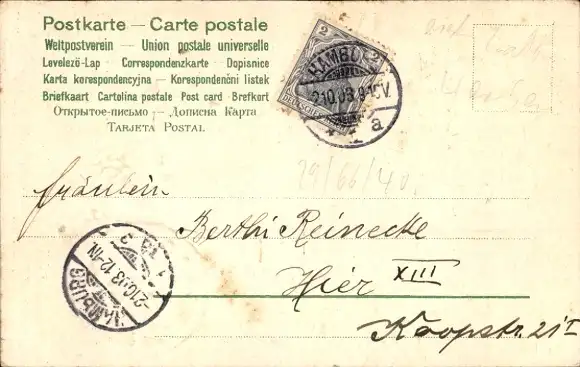 Postkarte — Carte postale
Weltpostverein — Union postale universelle
Levelező-Lap — Correspondenzkarte — Dopisnice
Karta korespondencyjna — Korespondenčni listek
Briefkaart Cartolina postale Post card Brefkort
Открытое-письмо — Дописна Карта
TARJETA POSTAL
2 2
HAMBURG
2.10.03. 8-10 V.
a
29/66/40.
Fräulein
Berthi Reinecke
Hier XIII
Koopstr. 21 I
HAMBURG
2.10.03 12-1N.